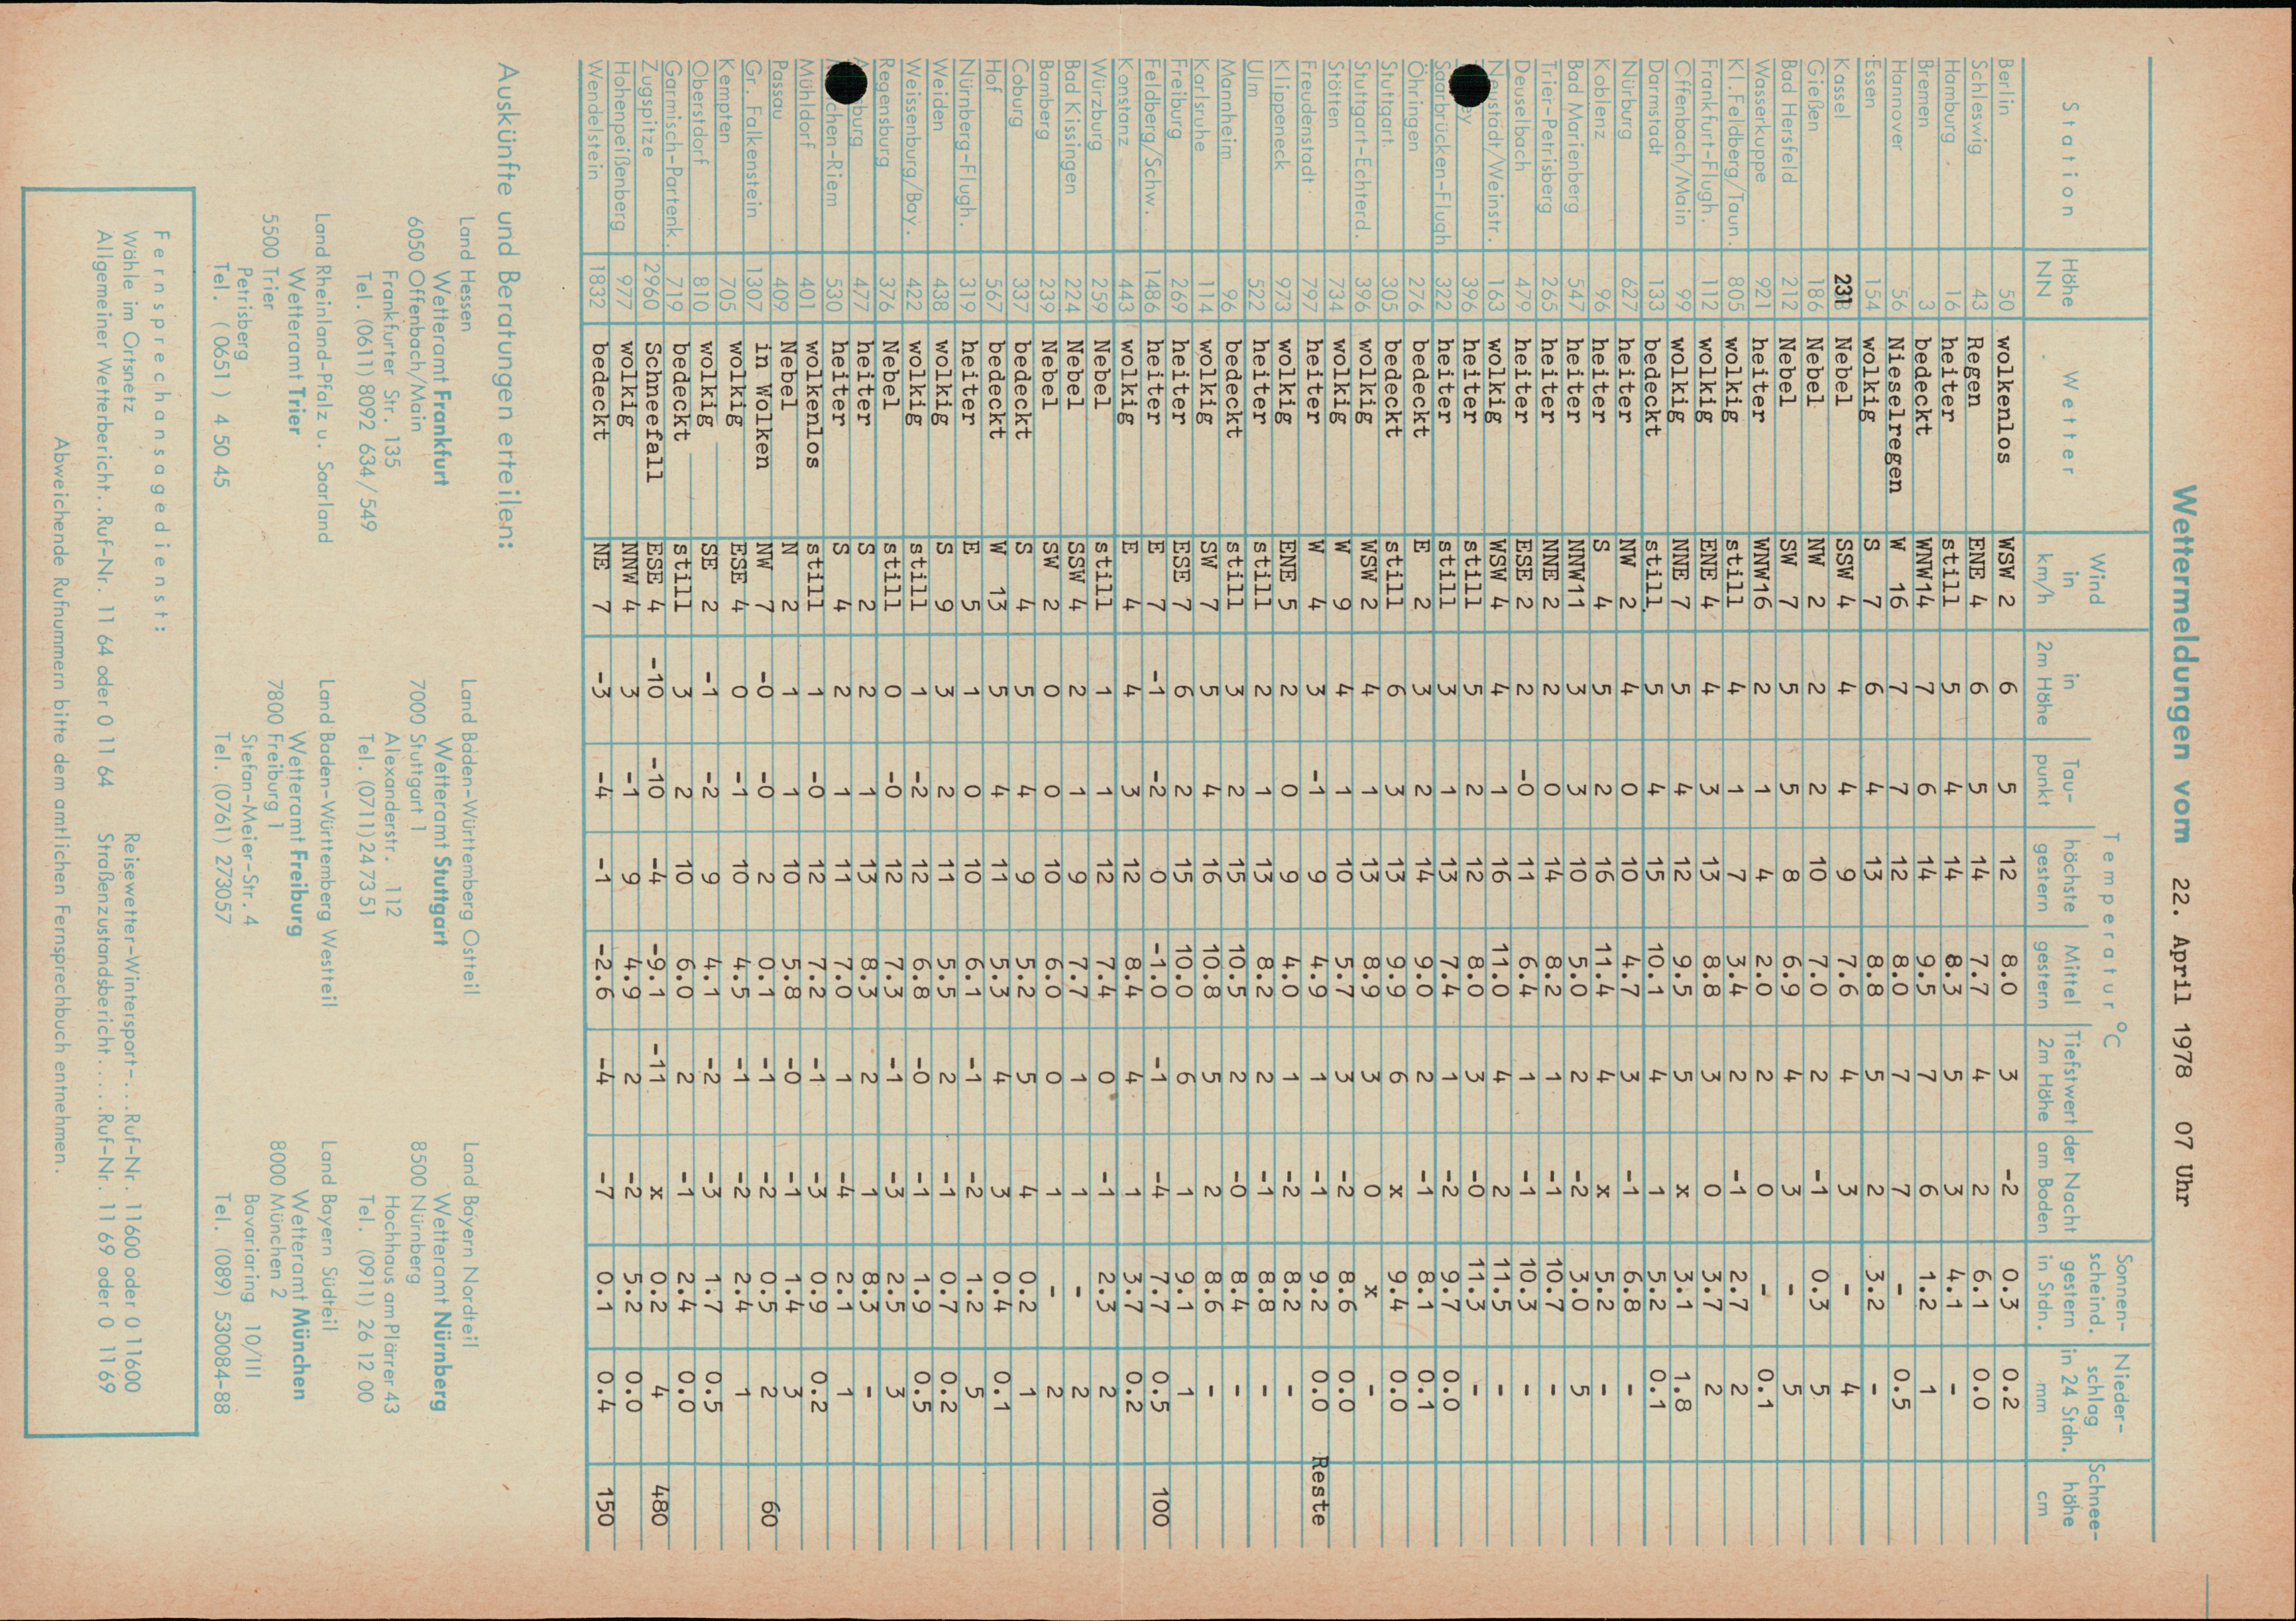 Wettermeldungen vom 22. April 1978 07 Uhr
Station Höhe NN Wetter Wind in km/h Temperatur °C in 2m Höhe Tau-punkt höchste gestern Mittel gestern Tiefstwert der Nacht 2m Höhe am Boden Sonnen-scheind. gestern in Stdn. Nieder-schlag in 24 Stdn. mm Schnee-höhe cm
Berlin 50 wolkenlos WSW 2 6 5 12 8.0 3 -2 0.3 0.2
Schleswig 43 Regen ENE 4 6 5 14 7.7 4 2 6.1 0.0
Hamburg 16 heiter still 5 4 14 8.3 5 3 4.1 -
Bremen 3 bedeckt WNW14 7 6 14 9.5 7 6 1.2 1
Hannover 56 Nieselregen W 16 7 7 12 8.0 7 7 - 0.5
Essen 154 wolkig S 7 6 4 13 8.8 5 2 3.2 -
Kassel 231 Nebel SSW 4 4 4 9 7.6 4 3 - 4
Gießen 186 Nebel NW 2 2 2 10 7.0 2 -1 0.3 5
Bad Hersfeld 212 Nebel SW 7 5 5 8 6.9 4 3 - 5
Wasserkuppe 921 heiter WNW16 2 1 4 2.0 2 0 - 0.1
Kl.Feldberg/Taun. 805 wolkig still 4 1 7 3.4 2 -1 2.7 2
Frankfurt-Flugh. 112 wolkig ENE 4 4 3 13 8.8 3 0 3.7 2
Offenbach/Main 99 wolkig NNE 7 5 4 12 9.5 5 x 3.1 1.8
Darmstadt 133 bedeckt still 5 4 15 10.1 4 1 5.2 0.1
Nürburg 627 heiter NW 2 4 0 10 4.7 3 -1 6.8 -
Koblenz 96 heiter S 4 5 2 16 11.4 4 x 5.2 -
Bad Marienberg 547 heiter NNW11 3 3 10 5.0 2 -2 3.0 5
Trier-Petrisberg 265 heiter NNE 2 2 0 14 8.2 1 -1 10.7 -
Deuselbach 479 heiter ESE 2 2 -0 11 6.4 1 -1 10.3 -
Neustadt/Weinstr. 163 wolkig WSW 4 4 1 16 11.0 4 2 11.5 -
396 heiter still 5 2 12 8.0 3 -0 11.3 -
Saarbrücken-Flugh 322 heiter still 3 1 13 7.4 1 -2 9.7 0.0
Öhringen 276 bedeckt E 2 3 2 14 9.0 2 -1 8.1 0.1
Stuttgart 305 bedeckt still 6 3 13 9.9 6 x 9.4 0.0
Stuttgart-Echterd. 396 wolkig WSW 2 4 1 13 8.9 3 0 x -
Stötten 734 wolkig W 9 4 1 10 5.7 3 -2 8.6 0.0
Freudenstadt 797 heiter W 4 3 -1 9 4.9 1 -1 9.2 0.0 Reste
Klippeneck 973 wolkig ENE 5 2 0 9 4.0 1 -2 8.2 -
Ulm 522 heiter still 2 1 13 8.2 2 -1 8.8 -
Mannheim 96 bedeckt still 3 2 15 10.5 2 -0 8.4 -
Karlsruhe 114 wolkig SW 7 5 4 16 10.8 5 2 8.6 -
Freiburg 269 heiter ESE 7 6 2 15 10.0 6 1 9.1 1
Feldberg/Schw. 1486 heiter E 7 -1 -2 0 -1.0 -1 -4 7.7 0.5 100
Konstanz 443 wolkig E 4 4 3 12 8.4 4 1 3.7 0.2
Würzburg 259 Nebel still 1 1 12 7.4 0 -1 2.3 2
Bad Kissingen 224 Nebel SSW 4 2 1 9 7.7 1 1 - 2
Bamberg 239 Nebel SW 2 0 0 10 6.0 0 1 - 2
Coburg 337 bedeckt S 4 5 4 9 5.2 5 4 0.2 1
Hof 567 bedeckt W 13 5 4 11 5.3 4 3 0.4 0.1
Nürnberg-Flugh. 319 heiter E 5 1 0 10 6.1 -1 -2 1.2 5
Weiden 438 wolkig S 9 3 2 11 5.5 2 -1 0.7 0.2
Weissenburg/Bay. 422 wolkig still 1 -2 12 6.8 -0 -1 1.9 0.5
Regensburg 376 Nebel still 0 -0 12 7.3 -1 -3 2.5 3
477 heiter S 2 2 1 13 8.3 2 1 8.3 -
chen-Riem 530 heiter S 4 2 1 11 7.0 1 -4 2.1 1
Mühldorf 401 wolkenlos still 1 -0 12 7.2 -1 -3 0.9 0.2
Passau 409 Nebel N 2 1 1 10 5.8 -0 -1 1.4 3
Gr. Falkenstein 1307 in Wolken NW 7 -0 -0 2 0.1 -1 -2 0.5 2 60
Kempten 705 wolkig ESE 4 0 -1 10 4.5 -1 -2 2.4 1
Oberstdorf 810 wolkig SE 2 -1 -2 9 4.1 -2 -3 1.7 0.5
Garmisch-Partenk. 719 bedeckt still 3 2 10 6.0 2 -1 2.4 0.0
Zugspitze 2960 Schneefall ESE 4 -10 -10 -4 -9.1 -11 x 0.2 4 480
Hohenpeißenberg 977 wolkig NNW 4 3 -1 9 4.9 2 -2 5.2 0.0
Wendelstein 1832 bedeckt NE 7 -3 -4 -1 -2.6 -4 -7 0.1 0.4 150
Auskünfte und Beratungen erteilen:
Land Hessen
Wetteramt Frankfurt
6050 Offenbach/Main
Frankfurter Str. 135
Tel. (0611) 8092 634/549
Land Baden-Württemberg Ostteil
Wetteramt Stuttgart
7000 Stuttgart 1
Alexanderstr. 112
Tel. (0711) 24 73 51
Land Bayern Nordteil
Wetteramt Nürnberg
8500 Nürnberg
Hochhaus am Plärrer 43
Tel. (0911) 26 12 00
Land Rheinland-Pfalz u. Saarland
Wetteramt Trier
5500 Trier
Petrisberg
Tel. (0651) 4 50 45
Land Baden-Württemberg Westteil
Wetteramt Freiburg
7800 Freiburg 1
Stefan-Meier-Str. 4
Tel. (0761) 273057
Land Bayern Südteil
Wetteramt München
8000 München 2
Bavariaring 10/III
Tel. (089) 530084-88
Fernsprechansagedienst:
Wähle im Ortsnetz Reisewetter-Wintersport-...Ruf-Nr. 11600 oder 0 11600
Allgemeiner Wetterbericht..Ruf-Nr. 11 64 oder 0 11 64 Straßenzustandsbericht.....Ruf-Nr. 11 69 oder 0 11 69
Abweichende Rufnummern bitte dem amtlichen Fernsprechbuch entnehmen.